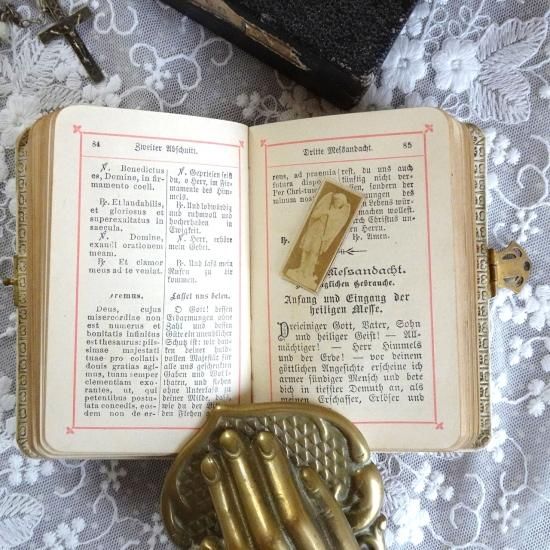 84 Zweiter Abschnitt.
℣. Benedictus
es, Domine, in fir-
mamento coeli.
℟. Et laudabilis,
et gloriosus et
superexaltatus in
saecula.
℣. Domine,
exaudi orationem
meam.
℟. Et clamor
meus ad te veniat.
Oremus.
Deus, cujus
misericordiae non
est numerus et
bonitatis infinitus
est thesaurus: piis-
simae majestati
tuae pro collatis
donis gratias agi-
mus, tuam semper
clementiam exo-
rantes, ut qui
petentibus postu-
lata concedis, eos-
dem non deser-
℣. Gepriesen seist
du, o Herr, im Fir-
mamente des Him-
mels.
℟. Und lobwürdig
und ruhmvoll und
hocherhaben in
Ewigkeit.
℣. Herr, erhöre
mein Gebet.
℟. Und laß mein
Rufen zu dir
kommen.
Lasset uns beten.
O Gott! dessen
Erbarmungen ohne
Zahl und dessen
Güte ein unendlicher
Schatz ist: wir dan-
ken deiner huld-
vollen Majestät für
alle uns geschenkten
Gaben und Wohl-
thaten, und flehen
ohne Unterlaß zu
deiner Milde, daß,
wie du der
den Flehen
Dritte Meßandacht. 85
rens, ad praemia
futura dispo
Per Christum
minum nos
℟.
rest, du uns auch
künftig nicht ver-
lassen, sondern der
nen
machen wollest.
urch Christus un-
Herrn.
℟. Amen.
Meßandacht.
Gebrauche.
Anfang und Eingang der
heiligen Messe.
Dreieiniger Gott, Vater, Sohn
und heiliger Geist! — All-
mächtiger! — Herr Himmels
und der Erde! — vor deinem
göttlichen Angesichte erscheine ich
armer sündiger Mensch und bete
dich in tiefster Demuth an, als
meinen Erschaffer, Erlöser und